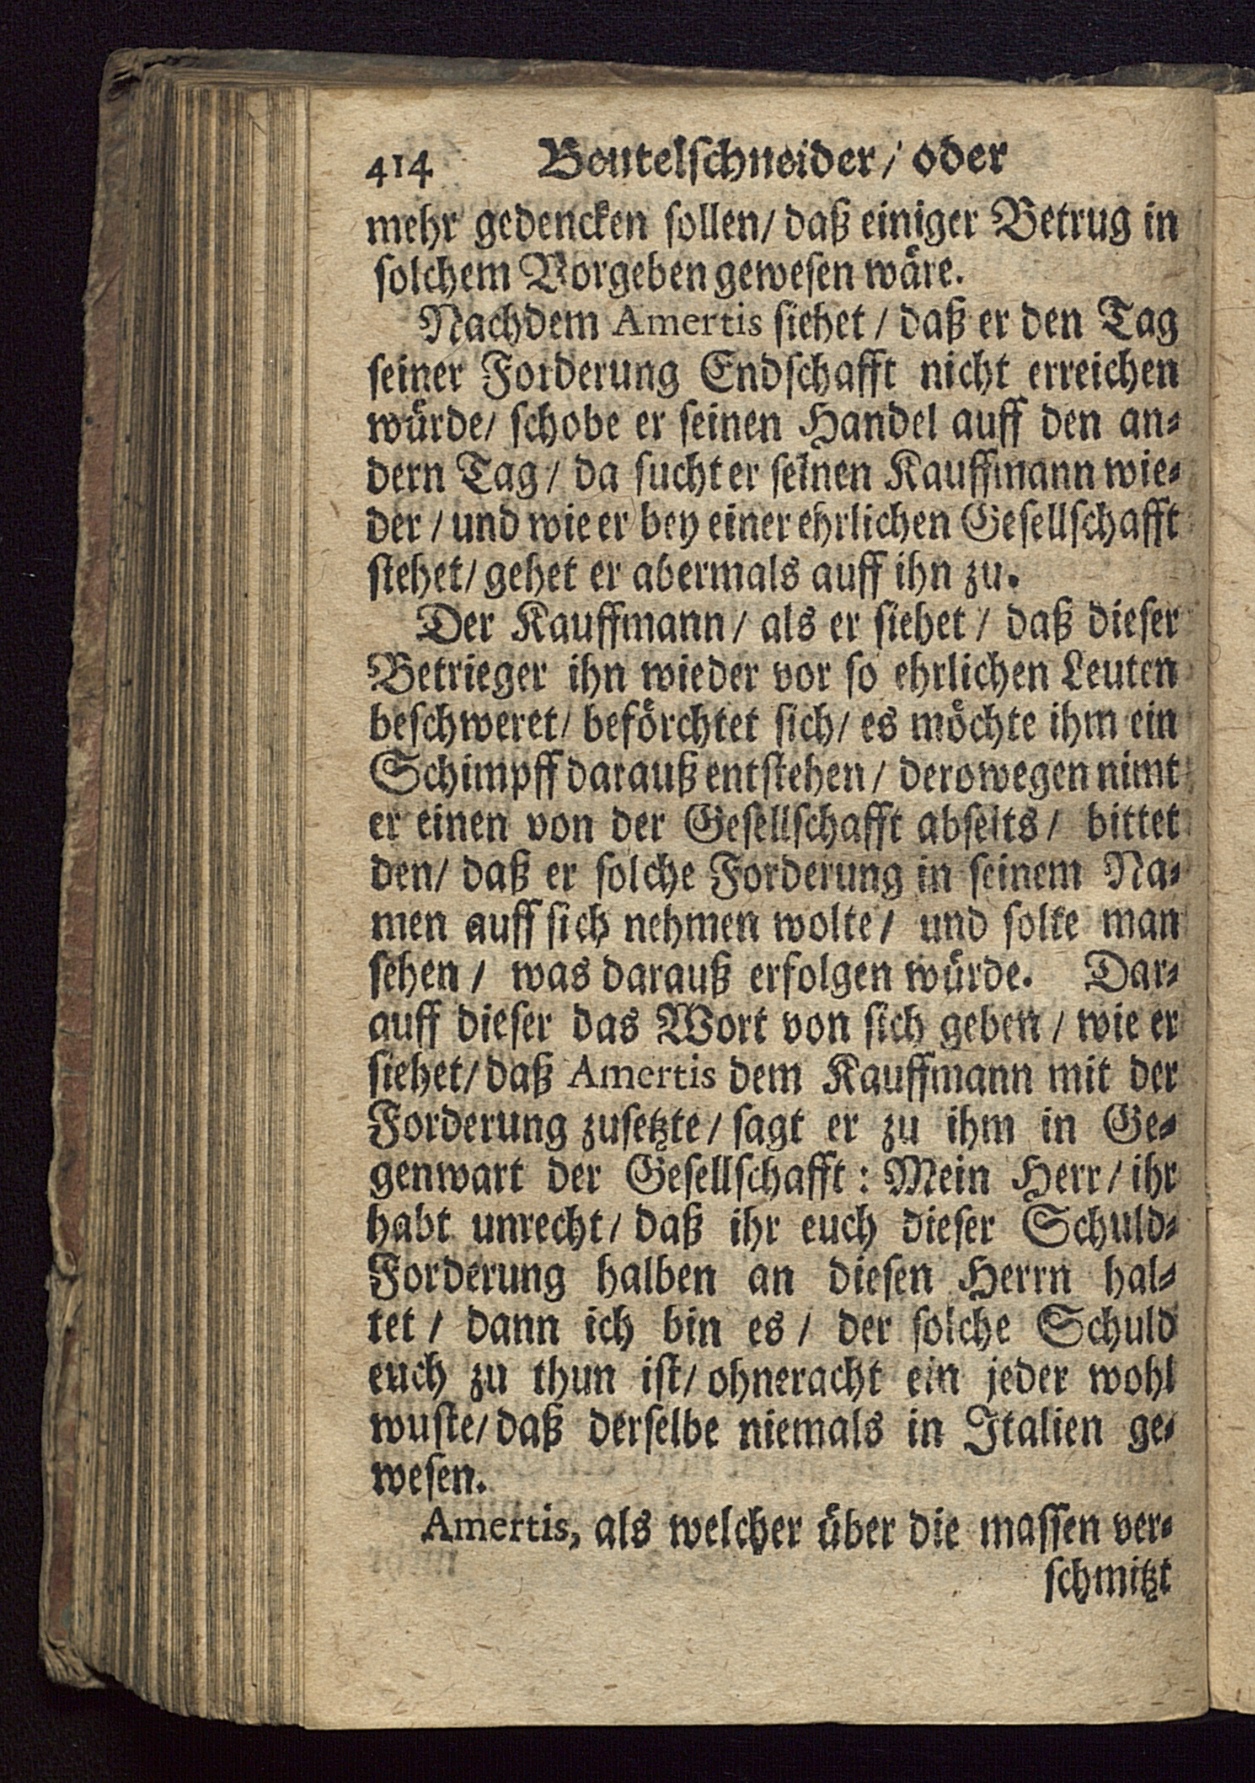 414 Beutelschneider/ oder
mehr gedencken sollen/ daß einiger Betrug in
solchem Vorgeben gewesen wäre.
Nachdem Amertis siehet/ daß er den Tag
seiner Forderung Endschafft nicht erreichen
würde/ schobe er seinen Handel auff den an-
dern Tag/ da sucht er seinen Kauffmann wie-
der/ und wie er bey einer ehrlichen Gesellschafft
stehet/ gehet er abermals auff ihn zu.
Der Kauffmann/ als er siehet/ daß dieser
Betrieger ihn wieder vor so ehrlichen Leuten
beschweret/ beförchtet sich/ es möchte ihm ein
Schimpff darauß entstehen/ derowegen nimt
er einen von der Gesellschafft abseits/ bittet
den/ daß er solche Forderung in seinem Na-
men auff sich nehmen wolte/ und solte man
sehen/ was darauß erfolgen würde. Dar-
auff dieser das Wort von sich geben/ wie er
siehet/ daß Amertis dem Kauffmann mit der
Forderung zusetzte/ sagt er zu ihm in Ge-
genwart der Gesellschafft: Mein Herr/ ihr
habt unrecht/ daß ihr euch dieser Schuld-
Forderung halben an diesen Herrn hal-
tet/ dann ich bin es/ der solche Schuld
euch zu thun ist/ ohneracht ein jeder wohl
wuste/ daß derselbe niemals in Italien ge-
wesen.
Amertis, als welcher über die massen ver-
schmitzt